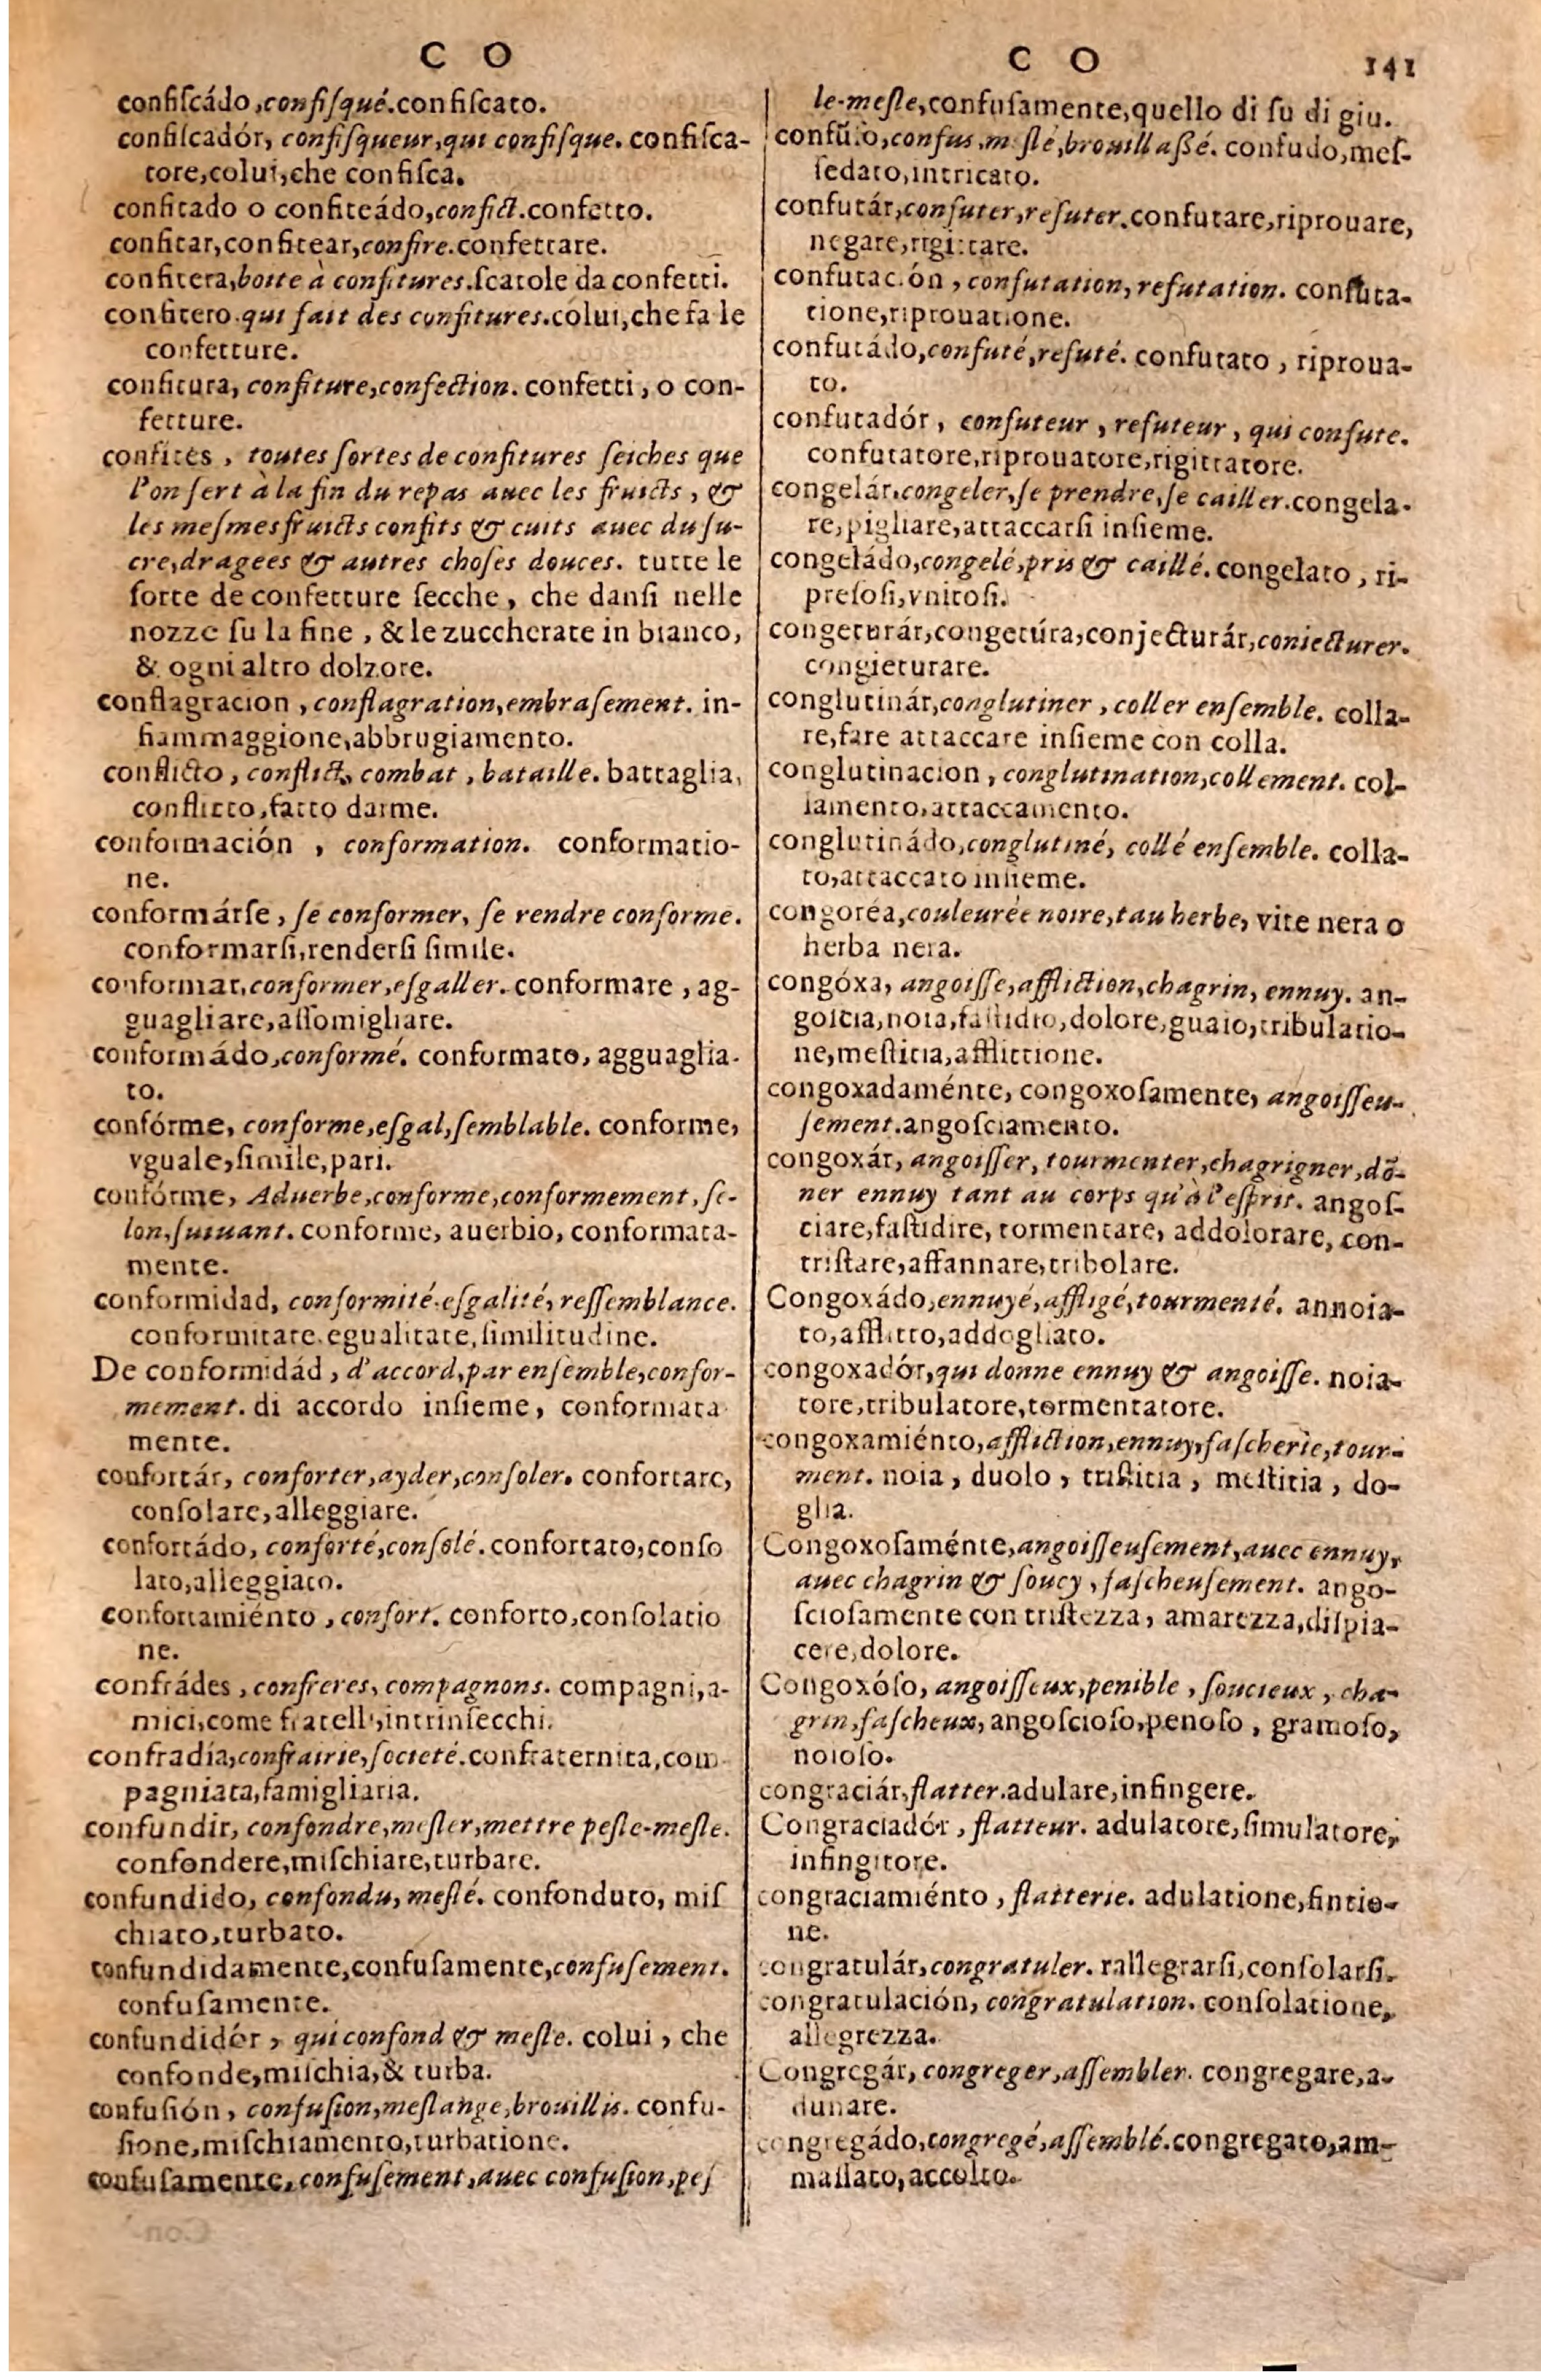 C O
confiſcádo, confiſqué. confiſcato.
confiſcadór, confiſqueur, qui confiſque. confiſca-
tore, colui, che confiſca.
confitado o confiteádo, confict. confetto.
confitar, confitear, confire. confettare.
confitera, boite à confitures. ſcatole da confetti.
confitero. qui fait des confitures. colui, che fa le
confetture.
confitura, confiture, confection. confetti, o con-
fetture.
confites, toutes ſortes de confitures ſeiches que
l'on ſert à la fin du repas auec les fruicts, &
les meſmes fruicts confits & cuits auec du ſu-
cre, dragees & autres choſes douces. tutte le
ſorte de confetture ſecche, che danſi nelle
nozze ſu la fine, & le zuccherate in bianco,
& ogni altro dolzore.
conflagracion, conflagration, embraſement. in-
fiammaggione, abbrugiamento.
conflicto, conflict, combat, bataille. battaglia,
conflitto, fatto darme.
conformación, conformation. conformatio-
ne.
conformárſe, ſe conformer, ſe rendre conforme.
conformarſi, renderſi ſimile.
conformar, conformer, eſgaller. conformare, ag-
guagliare, aſſomigliare.
conformádo, conformé. conformato, agguaglia-
to.
confórme, conforme, eſgal, ſemblable. conforme,
vguale, ſimile, pari.
confórme, Aduerbe, conforme, conformement, ſe-
lon, ſuiuant. conforme, auerbio, conformata-
mente.
conformidad, conformité. eſgalité, reſſemblance.
conformitate. egualitate, ſimilitudine.
De conformidád, d'accord, par enſemble, confor-
mement. di accordo inſieme, conformata
mente.
confortár, conforter, ayder, conſoler. confortare,
conſolare, alleggiare.
confortádo, conforté, conſolé. confortato, conſo
lato, alleggiato.
confortamiénto, confort. conforto, conſolatio
ne.
confrádes, confreres, compagnons. compagni, a-
mici, come fratelli, intrinſecchi.
confradía, confrairie, ſocieté. confraternita, com
pagniata, famigliaria.
confundir, confondre, meſler, mettre peſle-meſle.
confondere, miſchiare, turbare.
confundido, confondu, meſlé. confonduto, miſ
chiato, turbato.
confundidamente, confuſamente, confuſement.
confuſamente.
confundidór, qui confond & meſle. colui, che
confonde, miſchia, & turba.
confuſión, confuſion, meſlange, brouillis. confu-
ſione, miſchiamento, turbatione.
confuſamente, confuſement, auec confuſion, peſ
C O 141
le-meſle, confuſamente, quello di ſu di giu.
confúſo, confus, meſlé, brouillaßé. confudo, meſ-
ſedato, intricato.
confutár, confuter, refuter. confutare, riprouare,
negare, rigittare.
confutación, confutation, refutation. confuta-
tione, riprouatione.
confutádo, confuté, refuté. confutato, riproua-
to.
confutadór, confuteur, refuteur, qui confute.
confutatore, riprouatore, rigittatore.
congelár, congeler, ſe prendre, ſe cailler. congela-
re, pigliare, attaccarſi inſieme.
congeládo, congelé, pris & caillé. congelato, ri-
preſoſi, vnitoſi.
congeturár, congetúra, conjecturár, coniecturer.
congieturare.
conglutinár, conglutiner, coller enſemble. colla-
re, fare attaccare inſieme con colla.
conglutinacion, conglutination, collement. col-
lamento, attaccamento.
conglutinádo, conglutiné, collé enſemble. colla-
to, attaccato inſieme.
congoréa, couleurèe noire, tau herbe, vite nera o
herba nera.
congóxa, angoiſſe, affliction, chagrin, ennuy. an-
goſcia, noia, faſtidio, dolore, guaio, tribulatio-
ne, meſtitia, afflittione.
congoxadaménte, congoxoſamente, angoiſſeu-
ſement. angoſciamento.
congoxár, angoiſſer, tourmenter, chagrigner, dõ-
ner ennuy tant au corps qu'à l'eſprit. angoſ-
ciare, faſtidire, tormentare, addolorare, con-
triſtare, affannare, tribolare.
Congoxádo, ennuyé, affligé, tourmenté. annoia-
to, afflitto, addogliato.
congoxadór, qui donne ennuy & angoiſſe. noia-
tore, tribulatore, tormentatore.
congoxamiénto, affliction, ennuy, faſcherie, tour-
ment. noia, duolo, triſtitia, meſtitia, do-
glia.
Congoxoſaménte, angoiſſeuſement, auec ennuy,
auec chagrin & ſoucy, faſcheuſement. ango-
ſcioſamente con triſtezza, amarezza, diſpia-
cere, dolore.
Congoxóſo, angoiſſeux, penible, ſoucieux, cha-
grin, faſcheux, angoſcioſo, penoſo, gramoſo,
noioſo.
congraciár, flatter. adulare, infingere.
Congraciadór, flatteur. adulatore, ſimulatore,
infingitore.
congraciamiénto, flatterie. adulatione, fintio-
ne.
congratulár, congratuler. rallegrarſi, conſolarſi.
congratulación, congratulation. conſolatione,
allegrezza.
Congregár, congreger, aſſembler. congregare, a-
dunare.
congregádo, congregé, aſſemblé. congregato, am-
maſſato, accolto.